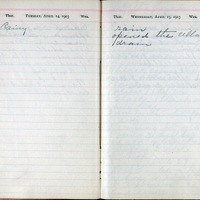 Ther. TUESDAY, APRIL 14, 1903 Wea.
Rainy
Ther. WEDNESDAY, APRIL 15, 1903 Wea.
rain
opened the
drain